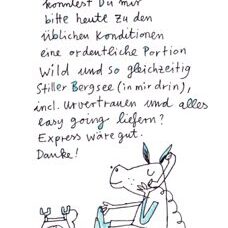 könntest Du mir
bitte heute zu den
üblichen Konditionen
eine ordentliche Portion
Wild und so gleichzeitig
Stiller Bergsee (in mir drin),
incl. Urvertrauen und alles
easy going liefern?
Express wäre gut.
Danke!